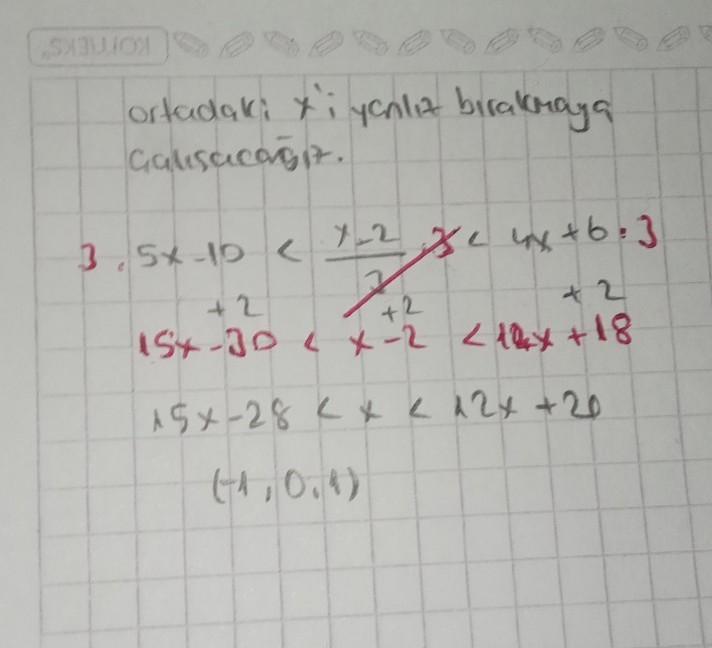 KOMEKS
ortadaki x'i yanlız bırakmaya
Çalışacağız.
3. 5x-10 < x-2/3 .3 < 4x+6.3
+2 +2 +2
15x-30 < x-2 < 12x+18
15x-28 < x < 12x+20
(-1,0,1)